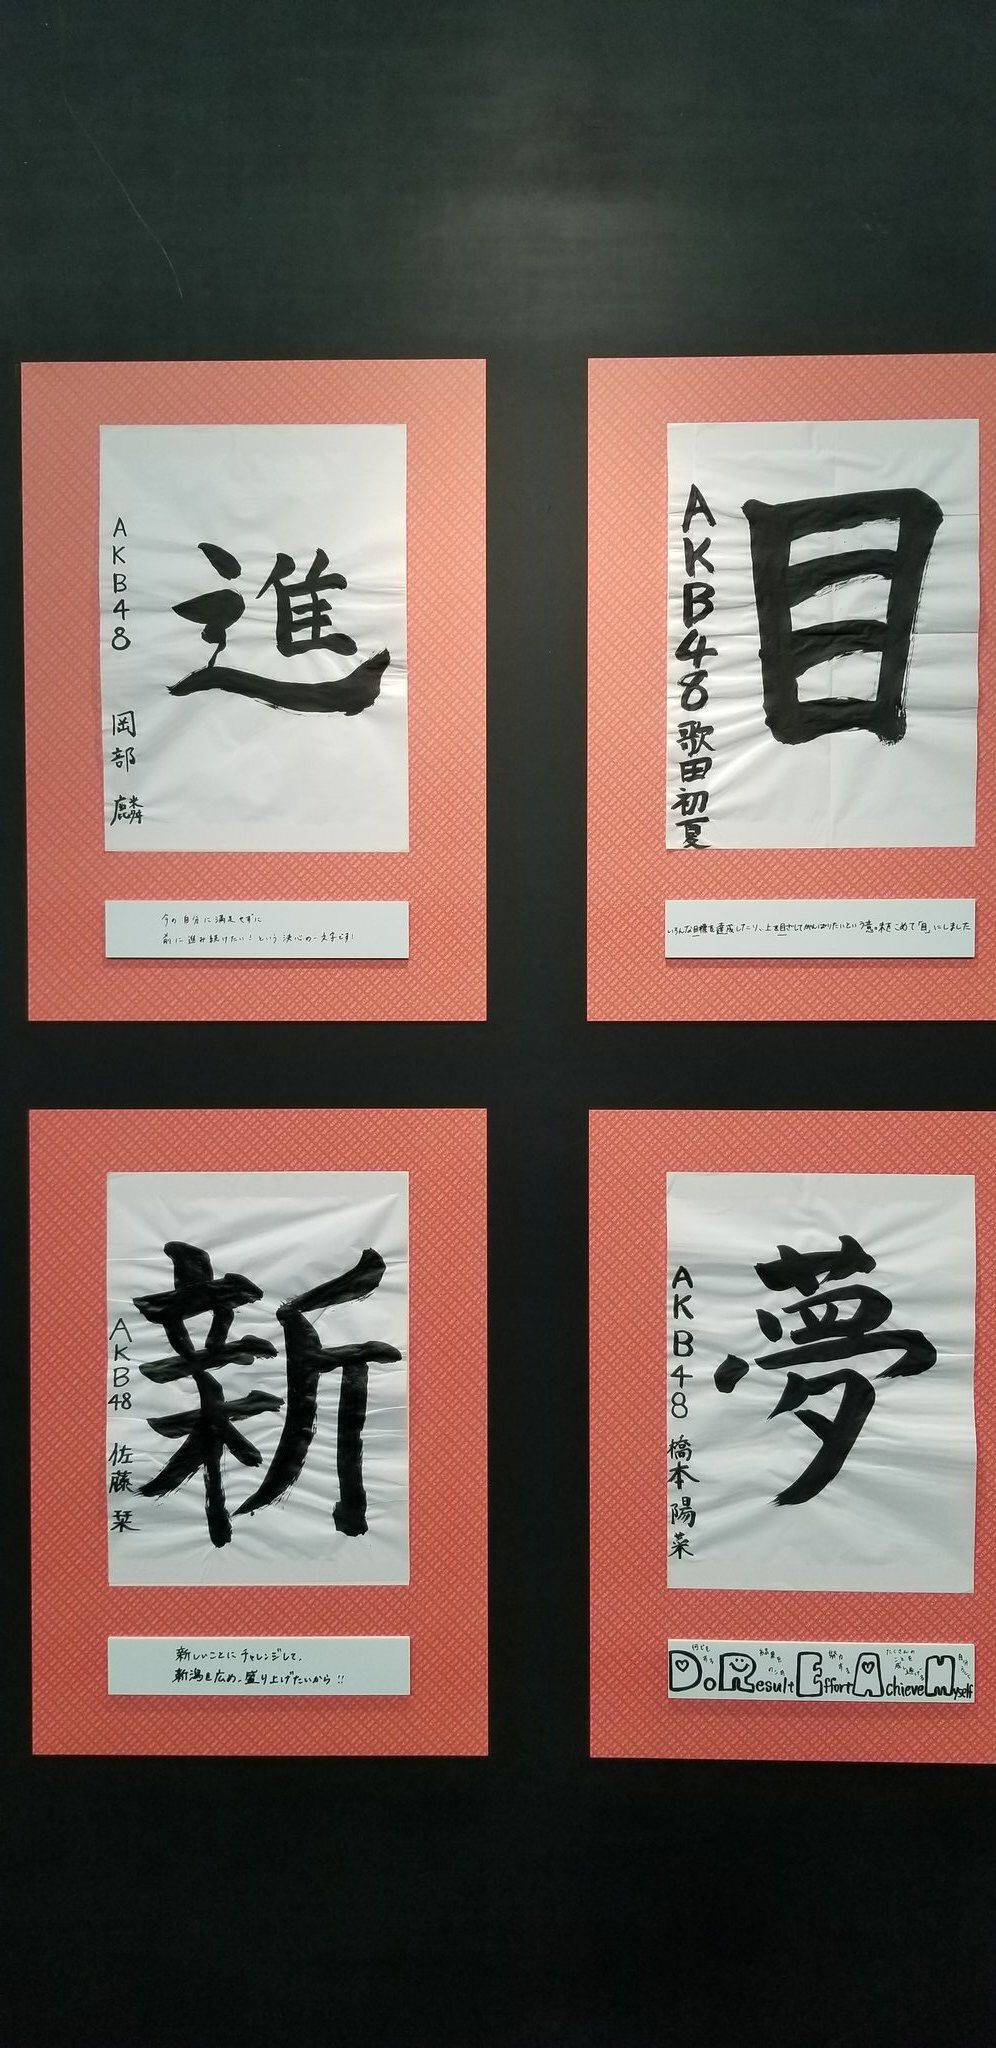 進
AKB48 岡部 麟
今の自分に満足せずに
前に進み続けたい！という決心の一文字です！
目
AKB48 歌田初夏
いろんな目標を達成したり、上を目さしてがんばりたいという意味をこめて「目」にしました
新
AKB48 佐藤 栞
新しいことにチャレンジして、
新潟を広め、盛り上げたいから!!
夢
AKB48 橋本陽菜
何でも する 結果を 努力 する たくさんの ことを 成し遂げる
Do Result Effort Achieve Myself